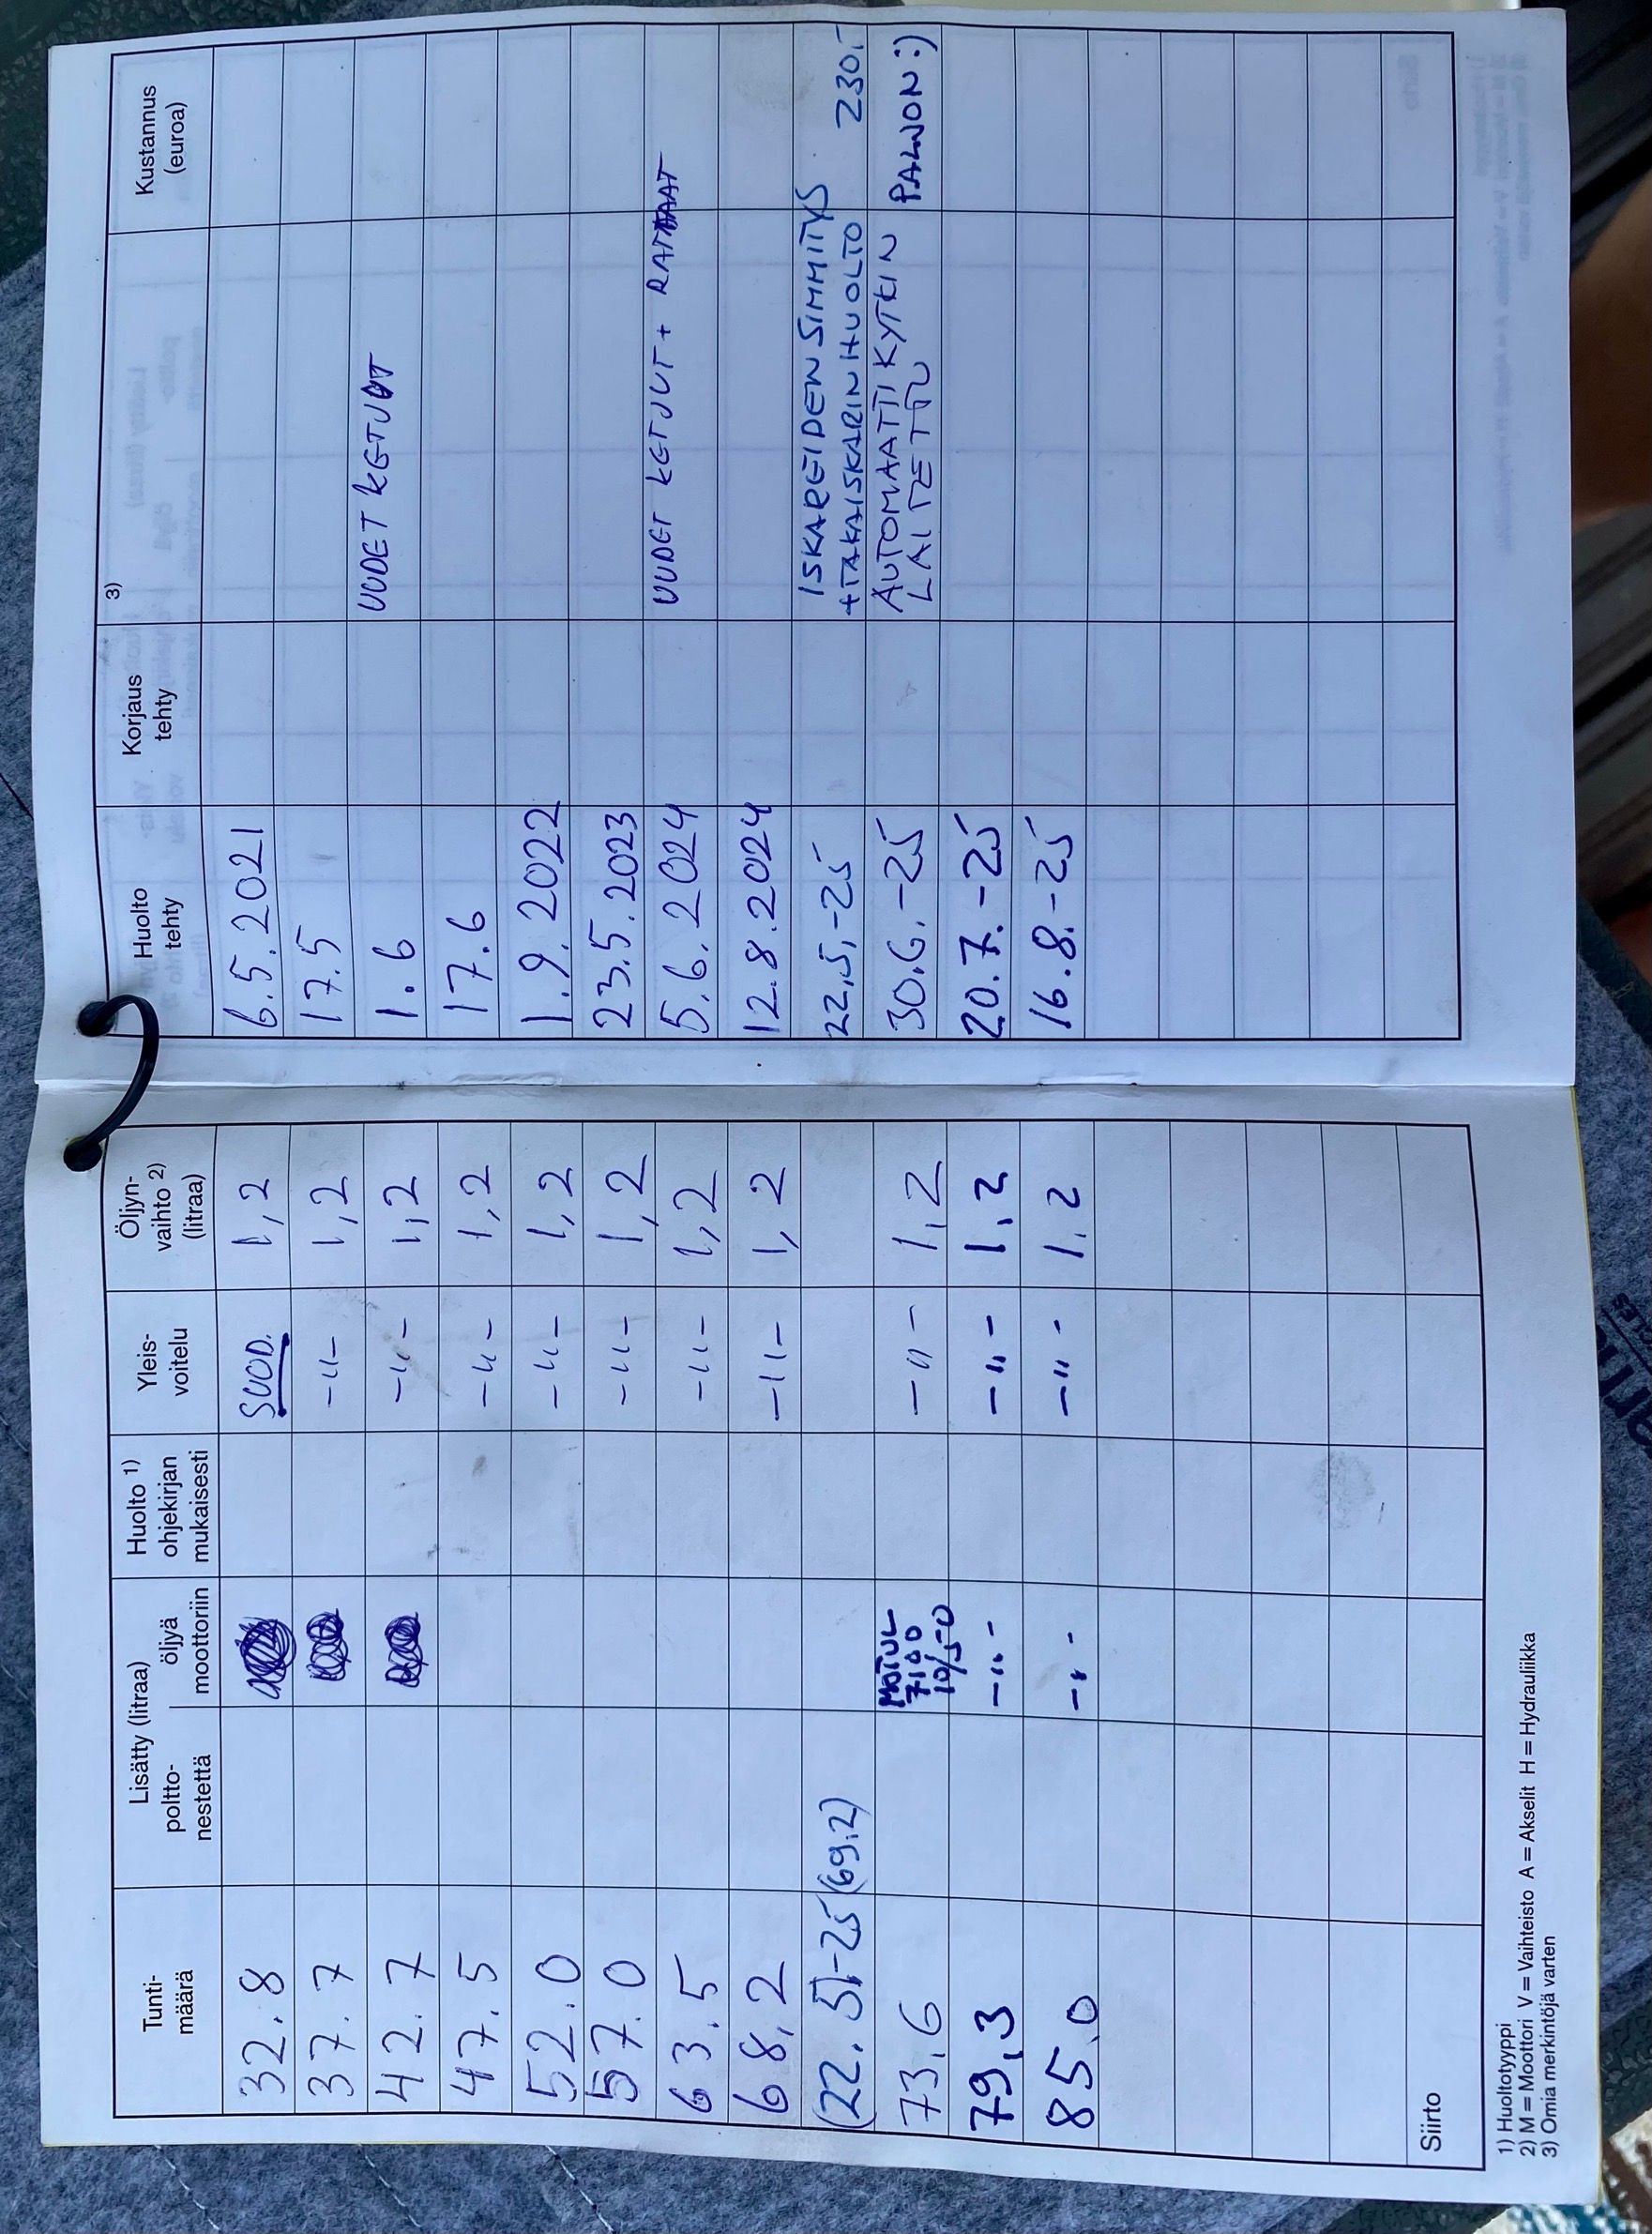 Tunti-
määrä
Lisätty (litraa)
poltto-
nestettä
öljyä
moottoriin
Huolto 1)
ohjekirjan
mukaisesti
Yleis-
voitelu
Öljyn-
vaihto 2)
(litraa)
32.8 SUOD. 1,2
37.7 -"- 1,2
42.7 -"- 1,2
47.5 -"- 1,2
52.0 -"- 1,2
57.0 -"- 1,2
63.5 -"- 1,2
68,2 -"- 1,2
(22.5.-25 (69.2)
73,6 MOTUL 7100 10/50 -"- 1,2
79,3 -"- -"- 1,2
85,0 -"- -"- 1.2
Siirto
1) Huoltotyyppi
2) M = Moottori V = Vaihteisto A = Akselit H = Hydrauliikka
3) Omia merkintöjä varten
Huolto
tehty
Korjaus
tehty
3)
Kustannus
(euroa)
6.5.2021
17.5
1.6 UUDET KETJUT
17.6
1.9.2022
23.5.2023
5.6.2024 UUDET KETJUT + RATTAAT
12.8.2024
22,5,-25 ISKAREIDEN SIMMITYS
+TAKAISKARIN HUOLTO 230,-
30.6.-25 AUTOMAATTI KYTKIN PALJON :)
LAITETTU
20.7.-25
16.8.-25